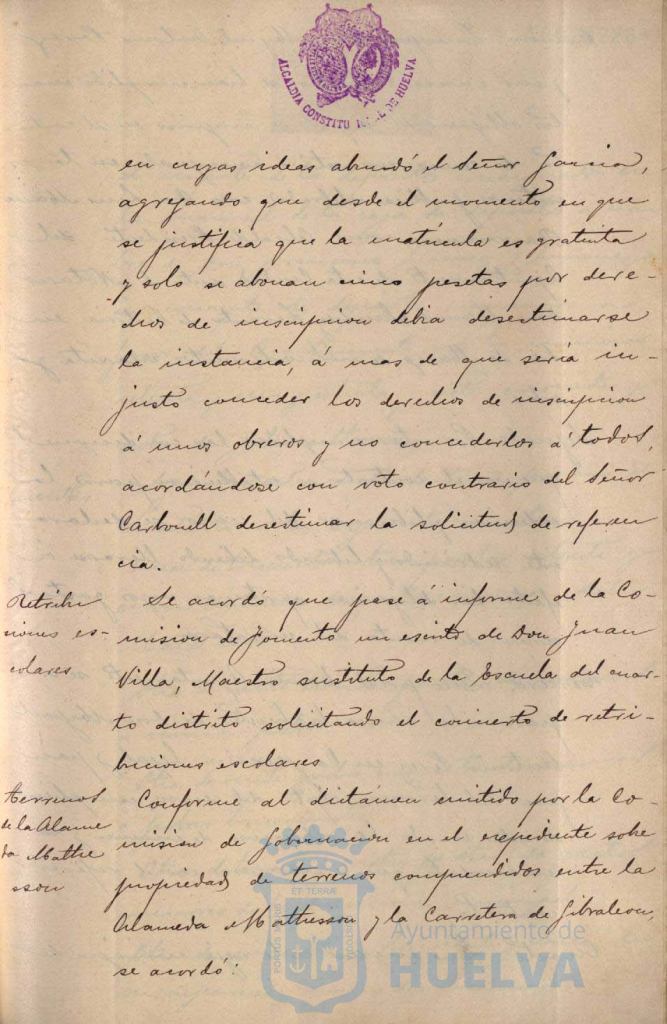 ALCALDIA CONSTITU DE HUELVA
en cuyas ideas abundó el Señor Garcia,
agregando que desde el momento en que
se justifica que la matricula es gratuita
y solo se abonan cinco pesetas por dere-
chos de inscripcion debia desestimarse
la instancia, á mas de que sería in-
justo conceder los derechos de inscripcion
á unos obreros y no concederlos á todos,
acordándose con voto contrario del Señor
Carbonell desestimar la solicitud de referen
cia.
Retribu
ciones es-
colares
Se acordó que pase á informe de la Co-
mision de Fomento un escrito de Don Juan
Villa, Maestro sustituto de la Escuela del cuar-
to distrito solicitando el concierto de retri-
buciones escolares
terrenos
de la Alame
da Mathe
sson
Conforme al dictámen emitido por la Co-
mision de Gobernacion en el expediente sobre
propiedad de terrenos comprendidos entre la
Alameda Mathesson y la Carretera de Gibraleon,
se acordó:
Ayuntamiento de
HUELVA